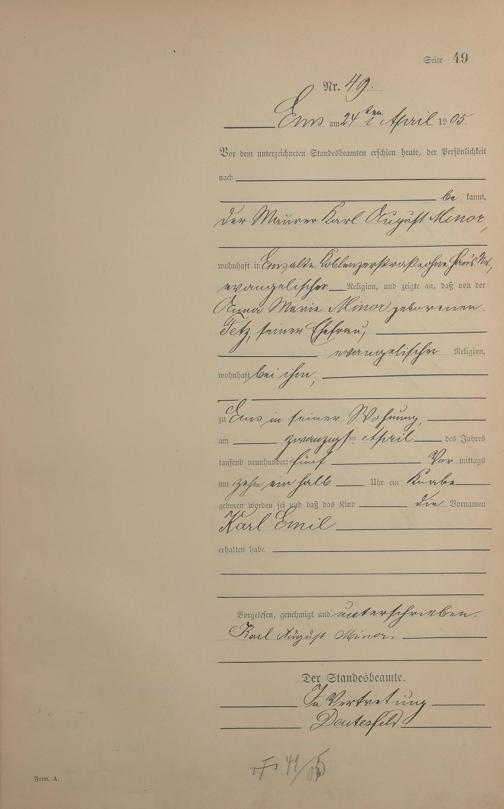 Seite 49
Nr. 49.
Ems am 24ten April 1905.
Vor dem unterzeichneten Standesbeamten erschien heute, der Persönlichkeit
nach
be kannt,
der Maurer Karl August Minor,
wohnhaft in Ems, alte Koblenzerstraße ohne Haus No,
evangelischer Religion, und zeigte an, daß von der
Anna Marie Minor geborenen
Tetz, seiner Ehefrau,
evangelischer Religion,
wohnhaft bei ihm,
zu Ems in seiner Wohnung,
am zwanzigsten April des Jahres
tausend neunhundert fünf Vor mittags
um zehn ein halb Uhr ein Knabe
geboren worden sei und daß das Kind die Vornamen
Karl Emil
erhalten habe
Vorgelesen, genehmigt und unterschrieben.
Karl August Minor.
Der Standesbeamte.
In Vertretung
Form. A.